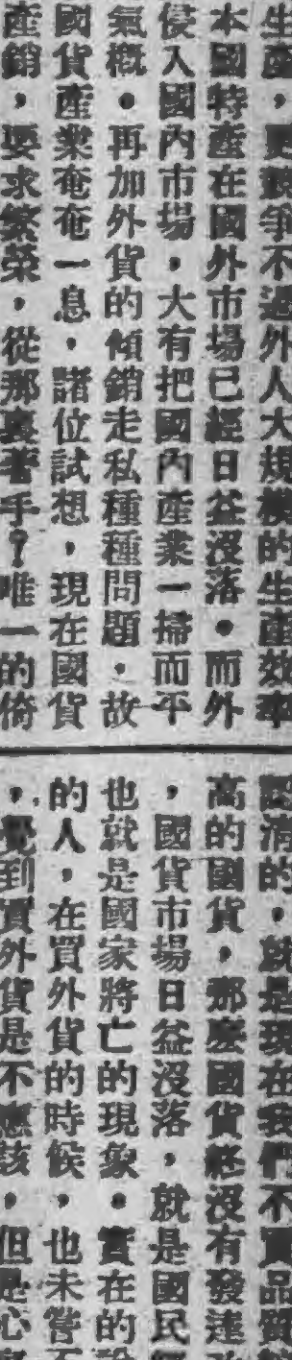 生產，更競爭不過外人大規模的生產效率
本國特產在國外市場已經日益沒落。而外
侵入國內市場，大有把國內產業一掃而平
氣概。再加外貨的傾銷走私種種問題。故
國貨產業奄奄一息，諸位試想，現在國貨
產銷，要求繁榮，從那裏著手？唯一的倚
認清的，就是現在我們不買品質
高的國貨，那麼國貨將沒有發達
，國貨市場日益沒落，就是國民
也就是國家將亡的現象。實在的
的人，在買外貨的時候，也未嘗
，覺到買外貨是不應該，但是心